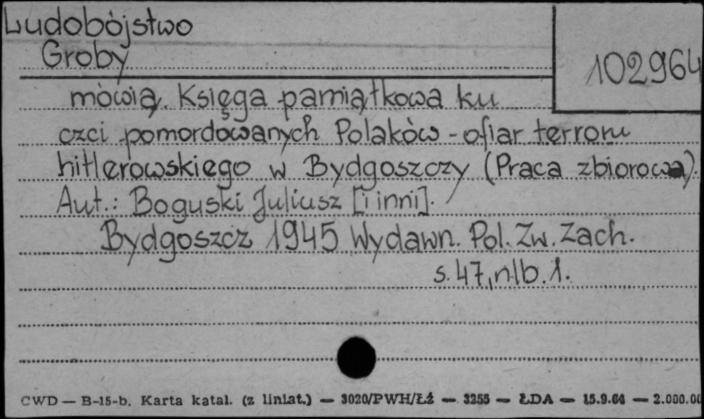 Ludobójstwo
Groby
102964
mówią. Księga pamiątkowa ku
czci pomordowanych Polaków - ofiar terroru
hitlerowskiego w Bydgoszczy (Praca zbiorowa).
Aut.: Boguski Juliusz [i inni].
Bydgoszcz 1945 Wydawn. Pol. Zw. Zach.
s. 47, nlb. 1.
CWD — B-15-b. Karta katal. (z liniat.) — 3020/PWH/Łź — 3255 — ŁDA — 15.9.64 — 2.000.00